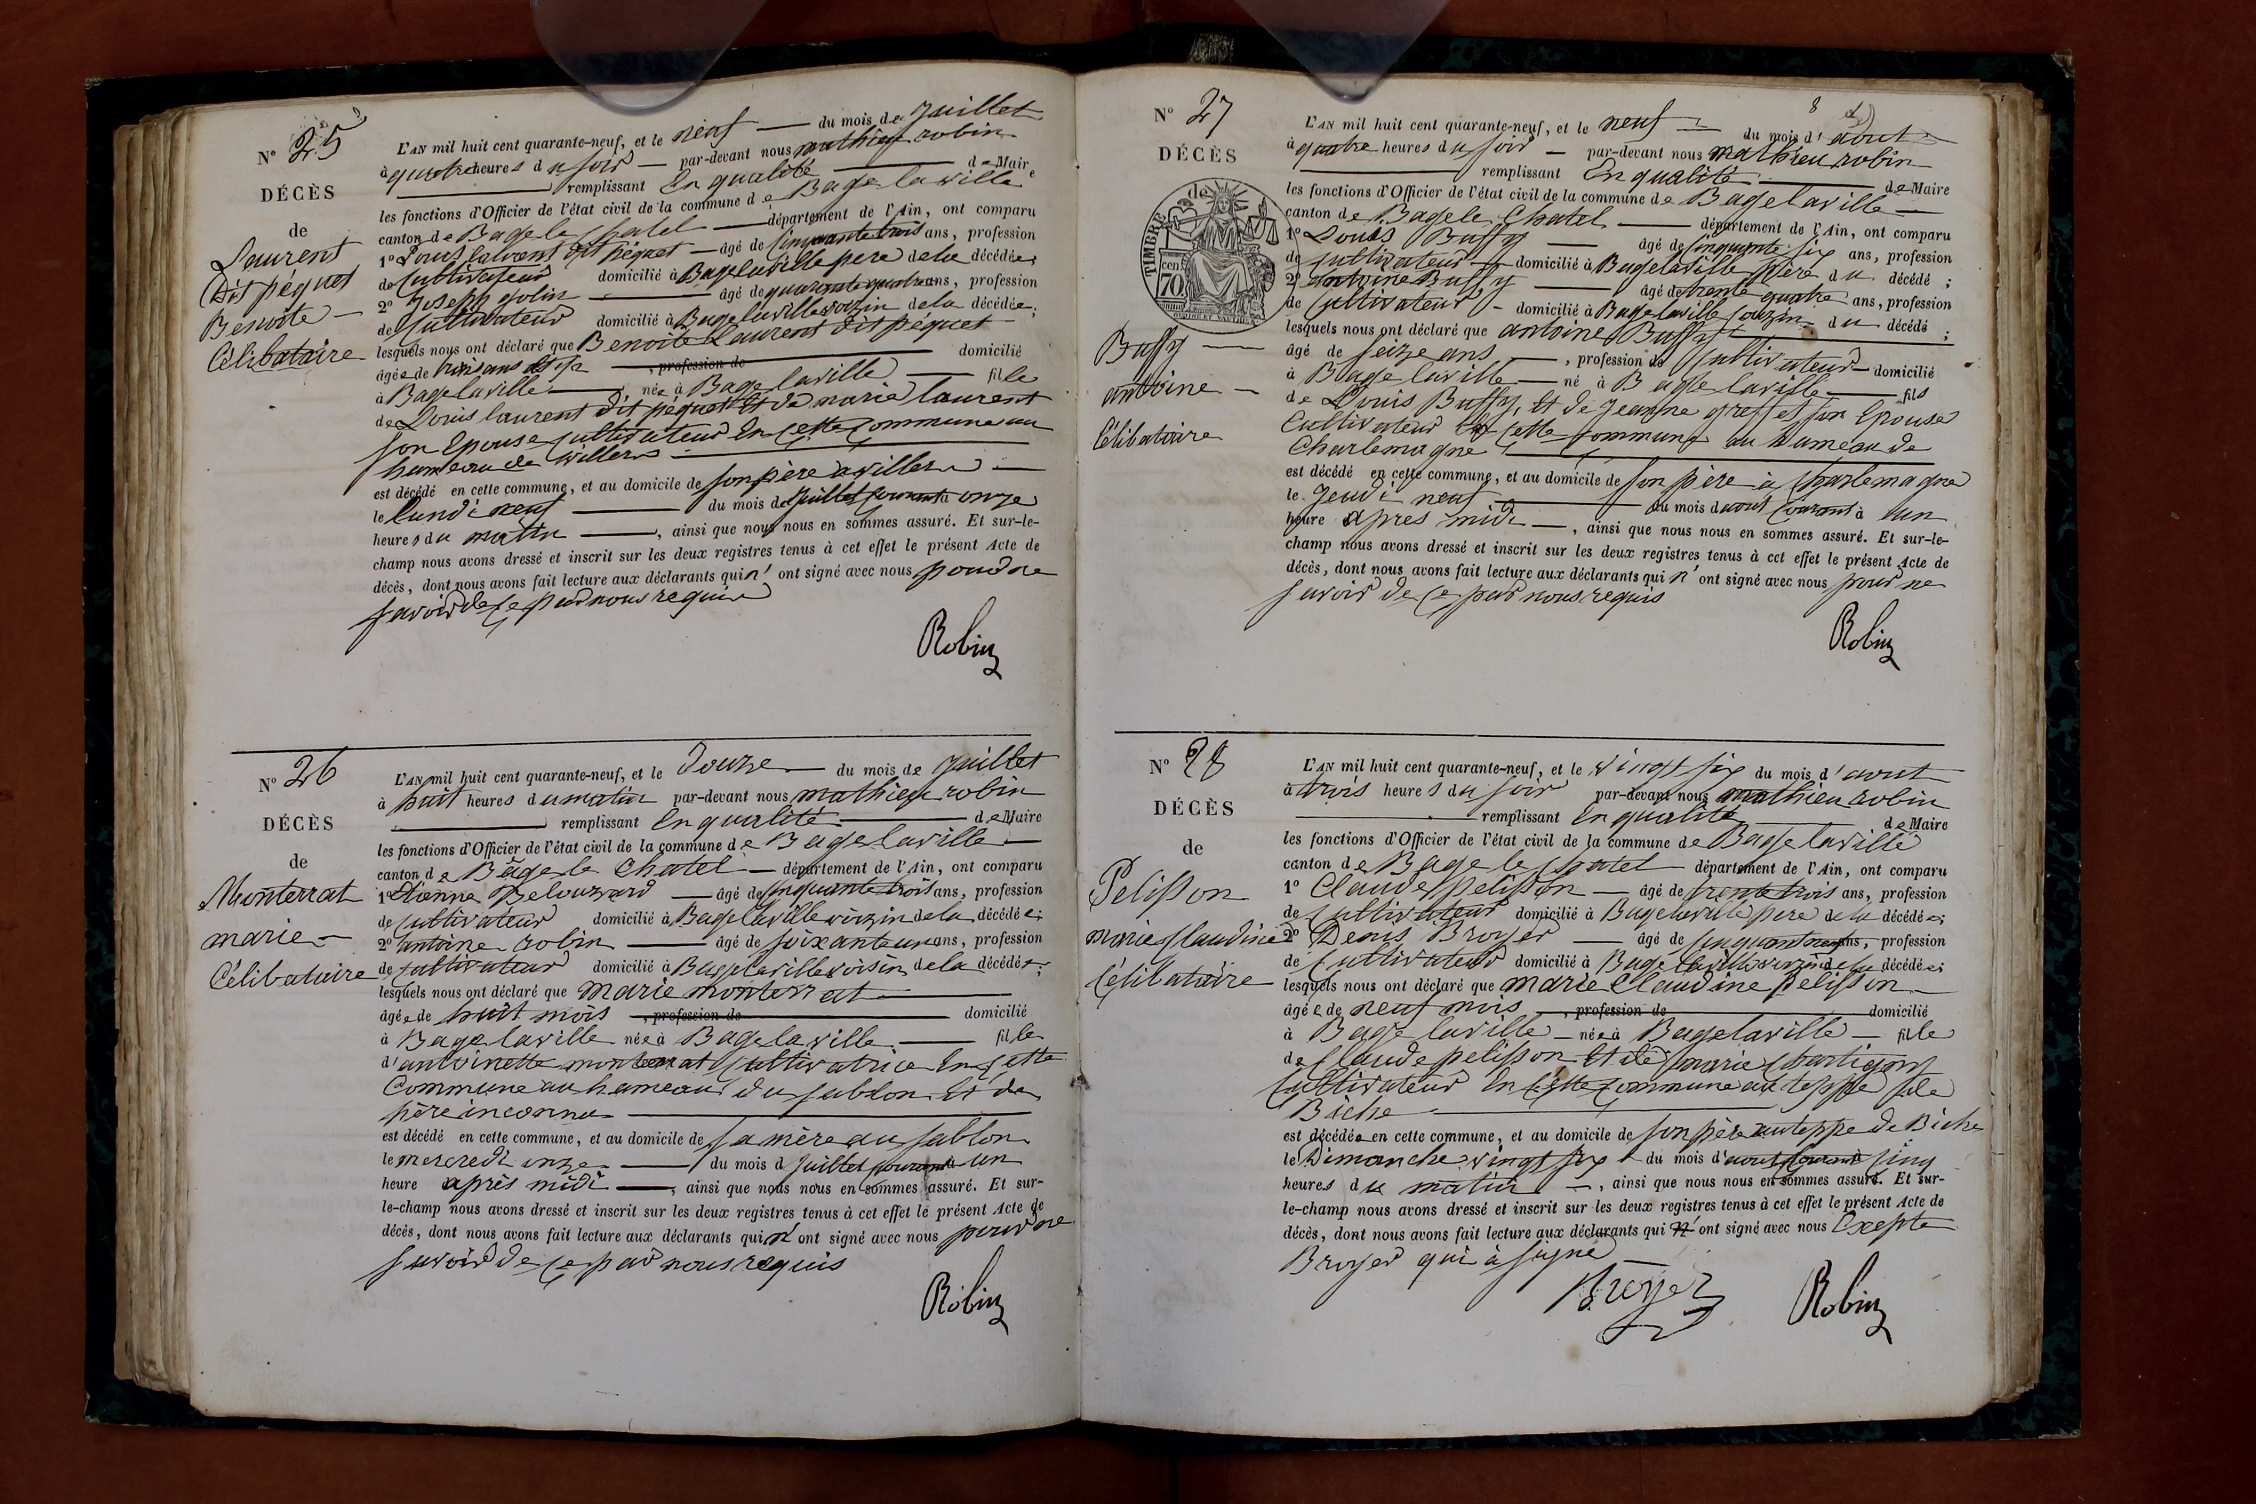 N° 25
DÉCÈS
de
Laurent
Dit péquet
Benoite
Célibataire
L'AN mil huit cent quarante-neuf, et le neuf du mois de Juillet
à quatre heures du soir par-devant nous mathieu robin
remplissant En qualité de Maire
les fonctions d'Officier de l'état civil de la commune de Bagelaville
canton de Bage le chatel département de l'Ain, ont comparu
1° Louis laurent dit péquet âgé de cinquante trois ans, profession
de Cultivateur domicilié à Bagelaville pere de la décédée;
2° Joseph golin âgé de quarante quatre ans, profession
de Cultivateur domicilié à Bagelaville voizin de la décédée;
lesquels nous ont déclaré que Benoite Laurent dit péquet
âgée de , profession de domicilié
à Bagelaville , née à Bagelaville fille
de Louis laurent dit péquet Et de marie laurent
son Epouse Cultivateur En cette Commune au
hameau de Villers
est décédé en cette commune, et au domicile de son père a villers
le lundi neuf du mois de Juillet courant à onze
heures du matin , ainsi que nous nous en sommes assuré. Et sur-le-
champ nous avons dressé et inscrit sur les deux registres tenus à cet effet le présent Acte de
décès, dont nous avons fait lecture aux déclarants qui n'ont signé avec nous pour ne
savoir de ce par nous requis
Robin
N° 26
DÉCÈS
de
Monterrat
marie
Célibataire
L'AN mil huit cent quarante-neuf, et le Douze du mois de Juillet
à huit heures du matin par-devant nous mathieu robin
remplissant En qualité de Maire
les fonctions d'Officier de l'état civil de la commune de Bagelaville
canton de Bage le Chatel département de l'Ain, ont comparu
1° Etienne Belouzard âgé de cinquante trois ans, profession
de Cultivateur domicilié à Bagelaville voizin de la décédée;
2° antoine robin âgé de soixante un ans, profession
de Cultivateur domicilié à Bagelaville voisin de la décédée;
lesquels nous ont déclaré que marie monterrat
âgée de huit mois , profession de domicilié
à Bagelaville née à Bagelaville fille
d'antoinette monterrat Cultivatrice En Cette
Commune au hameau du sablon Et de
père inconnu
est décédé en cette commune, et au domicile de sa mère au sablon
le mercredi onze du mois d Juillet courant à un
heure après midi , ainsi que nous nous en sommes assuré. Et sur-
le-champ nous avons dressé et inscrit sur les deux registres tenus à cet effet le présent Acte de
décès, dont nous avons fait lecture aux déclarants qui n'ont signé avec nous pour ne
savoir de ce par nous requis
Robin
N° 27
DÉCÈS
de
TIMBRE
70
Buffy
antoine
Célibataire
8
L'AN mil huit cent quarante-neuf, et le neuf du mois d'aout
à quatre heures du soir par-devant nous mathieu robin
remplissant En qualité de Maire
les fonctions d'Officier de l'état civil de la commune de Bagelaville
canton de Bage le Chatel département de l'Ain, ont comparu
1° Louis Buffy âgé de cinquante six ans, profession
de Cultivateur domicilié à Bagelaville père du décédé;
2° antoine Buffy âgé de trente quatre ans, profession
de Cultivateur domicilié à Bagelaville couzin du décédé;
lesquels nous ont déclaré que antoine Buffy
âgé de seize ans , profession de Cultivateur domicilié
à Bagelaville né à Bagelaville fils
de Louis Buffy, Et de Jeanne greffet son Epouse
Cultivateur En cette Commune au hameau de
Charlemagne
est décédé en cette commune, et au domicile de son père à Charlemagne
le Jeudi neuf du mois d'aout Courant à un
heure après midi , ainsi que nous nous en sommes assuré. Et sur-le-
champ nous avons dressé et inscrit sur les deux registres tenus à cet effet le présent Acte de
décès, dont nous avons fait lecture aux déclarants qui n'ont signé avec nous pour ne
savoir de ce par nous requis
Robin
N° 28
DÉCÈS
de
Pelisson
marie Claudine
Célibataire
L'AN mil huit cent quarante-neuf, et le vingt six du mois d'aout
à trois heures du soir par-devant nous mathieu robin
remplissant En qualité de Maire
les fonctions d'Officier de l'état civil de la commune de Bagelaville
canton de Bage le Chatel département de l'Ain, ont comparu
1° Claude pelisson âgé de trente trois ans, profession
de Cultivateur domicilié à Bagelaville pere de la décédée;
2° Denis Broyer âgé de ans, profession
de Cultivateur domicilié à Bagelaville voizin de la décédée;
lesquels nous ont déclaré que marie Claudine pelisson
âgée de neuf mois , profession de domicilié
à Bagelaville née à Bagelaville fille
de Claude pelisson Et de marie
Cultivateur En Cette Commune au teppe de
Biche
est décédée en cette commune, et au domicile de son père au teppe de Biche
le Dimanche vingt six du mois d'aout Courant à cinq
heures du matin , ainsi que nous nous en sommes assuré. Et sur-
le-champ nous avons dressé et inscrit sur les deux registres tenus à cet effet le présent Acte de
décès, dont nous avons fait lecture aux déclarants qui n'ont signé avec nous Exepte
Broyer qui à signé
Broyer Robin